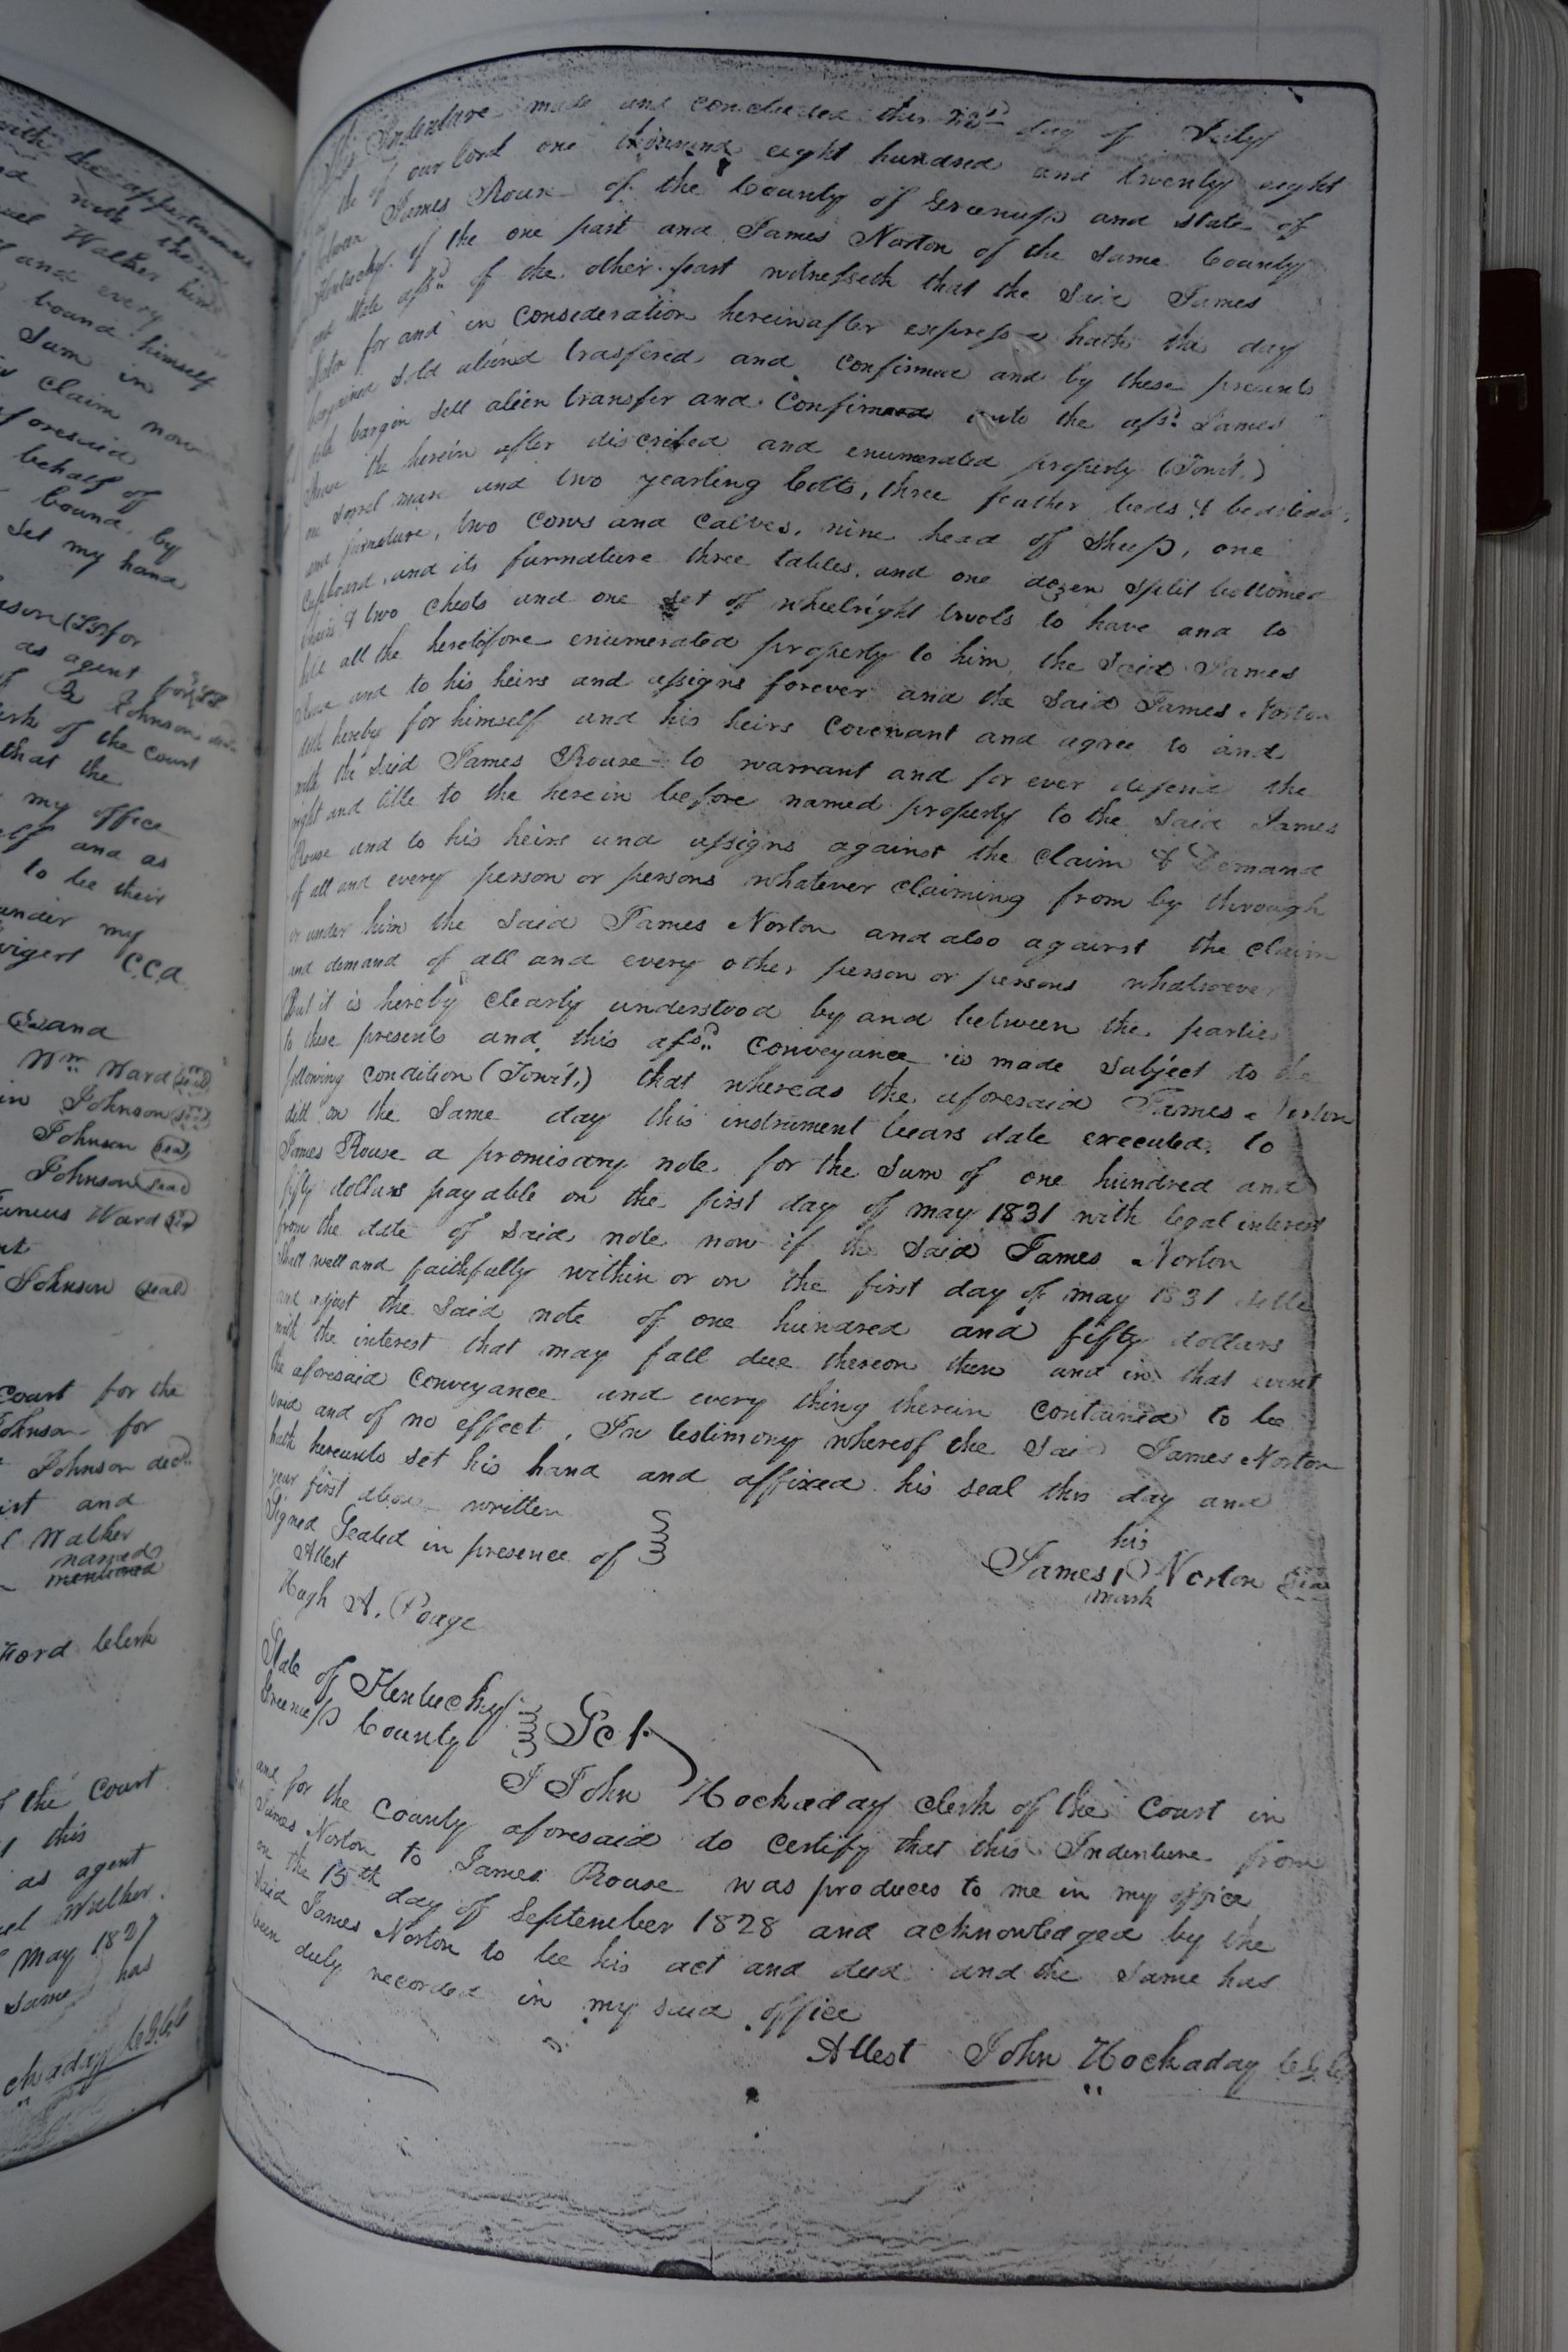 with the appurtenances
with the
Walker him
and every
bound himself
Sum in
claim now
aforesaid
behalf of
bound by
Set my hand
as agent for
Johnson
Clerk of the court
that the
my office
and as
to be their
under my
C.C.A.
and
Wm. Ward (seal)
Johnson (seal)
Johnson (seal)
Johnson (seal)
Junius Ward
Johnson (seal)
Court for the
Johnson for
Johnson decd.
and
Walker
named
mentioned
Ford Clerk
of the Court
this
as agent
Walker.
May 1827
Same has
This Indenture made and concluded this 22d day of July
in the of our lord one thousand eight hundred and twenty eight
between James Rouse of the County of Greenup and state of
Kentucky of the one part and James Norton of the same County
and state afsd. of the other part witnesseth that the said James
Norton for and in consideration hereinafter expressed hath the day
bargained sold aliend trasfered and confirmed and by these presents
doth bargin sell alien transfer and confirm unto the afsd. James
Rouse the herein after discribed and enumerated property (Towit.)
one sorrel mare and two yearling Colts, three feather beds & bedsteads
and furnature, two cows and calves, nine head of sheep, one
Cupboard and its furnature three tables, and one dozen split bottomed
chairs & two chests and one set of wheelright tools to have and to
hold all the heretofore enumerated property to him the said James
Rouse and to his heirs and assigns forever and the said James Norton
doth hereby for himself and his heirs covenant and agree to and
with the said James Rouse to warrant and for ever defend the
right and title to the herein before named property to the said James
Rouse and to his heirs and assigns against the claim & Demand
of all and every person or persons whatever claiming from by through
or under him the said James Norton and also against the claim
and demand of all and every other person or persons whatsoever
But it is hereby clearly understood by and between the parties
to these presents and this afsd. conveyance is made subject to the
following condition (Towit.) that whereas the aforesaid James Norton
did on the same day this instrument bears date executed to
James Rouse a promisary note for the sum of one hundred and
fifty dollars payable on the first day of may 1831 with legal interest
from the date of said note now if the said James Norton
shall well and faithfully within or on the first day of may 1831 settle
and adjust the said note of one hundred and fifty dollars
with the interest that may fall due thereon then and in that event
the aforesaid conveyance and every thing therein contained to be
void and of no effect. In testimony whereof the said James Norton
hath hereunto set his hand and affixed his seal this day and
year first above written
Signed Sealed in presence of
Attest
Hugh A. Poage
his
James Norton seal
mark
State of Kentucky
Greenup County Sct.
I John Hockaday clerk of the Court in
and for the County aforesaid do certify that this Indenture from
James Norton to James Rouse was produces to me in my office
on the 15th day of September 1828 and acknowledged by the
said James Norton to be his act and deed and the same has
been duly recorded in my said office
Attest John Hockaday C.G.C.